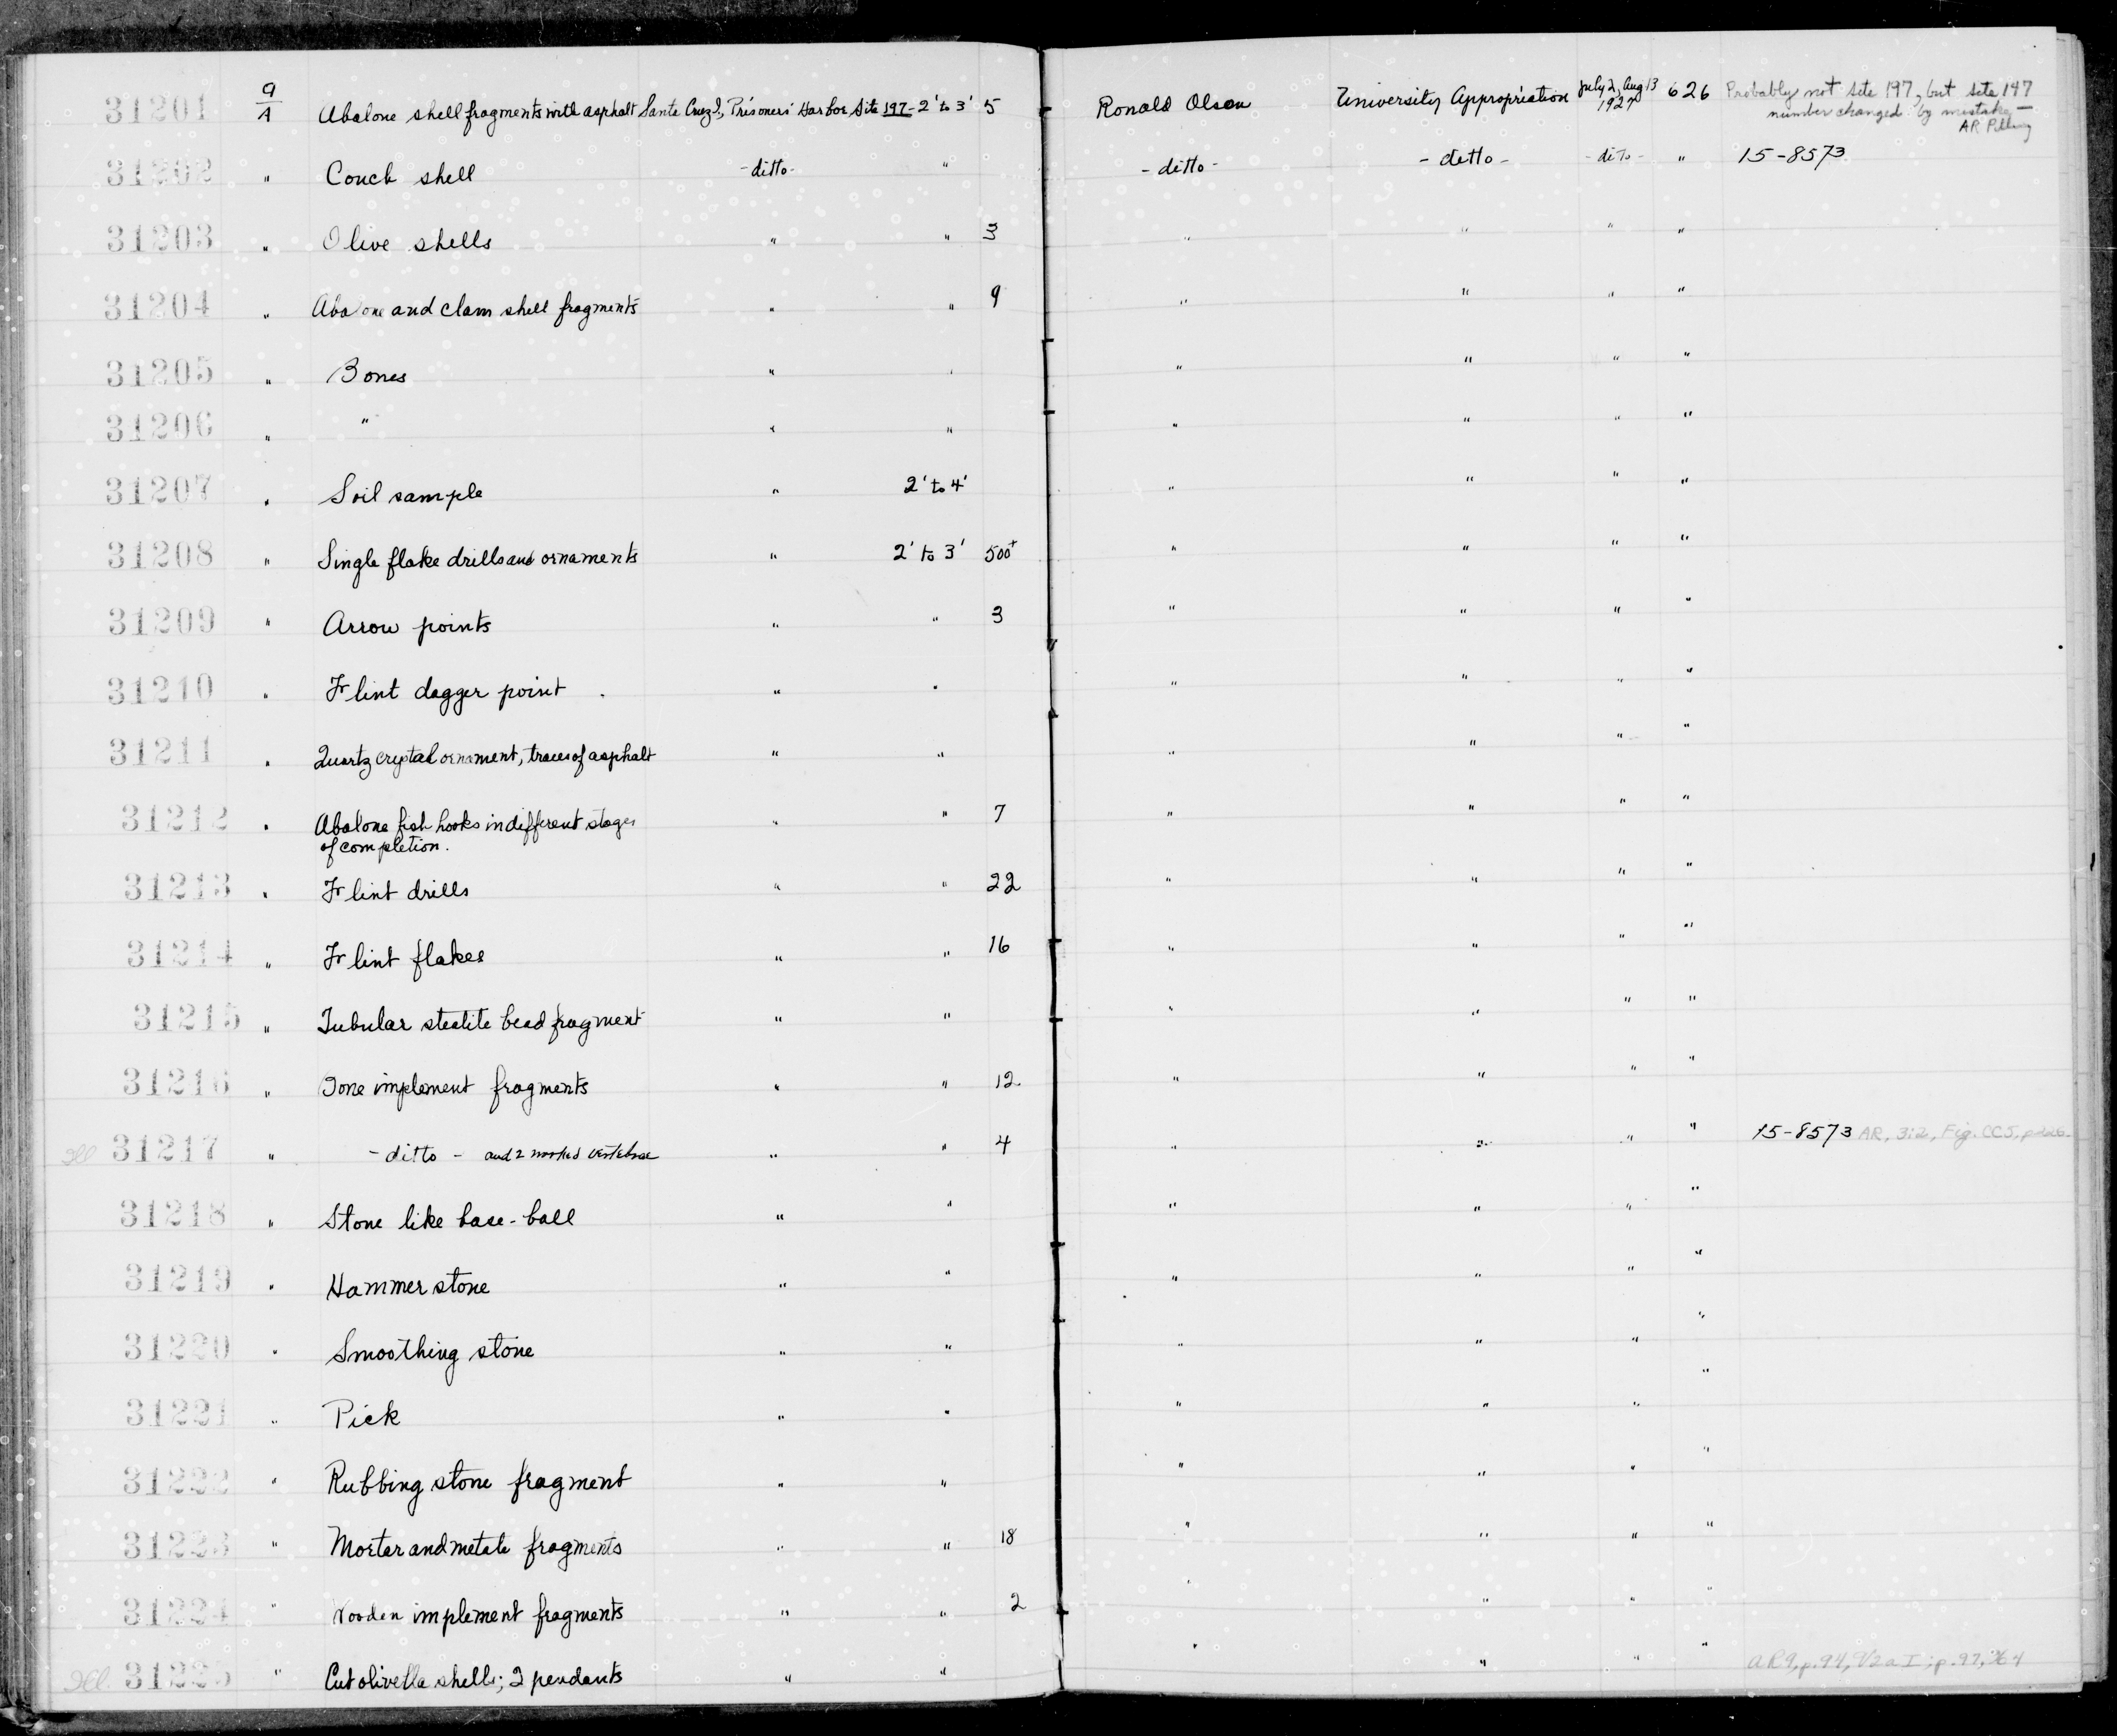 31201 9/A Abalone shell fragments with asphalt Santa Cruz I, Prisoners' Harbor Site 197- 2' to 3' 5 Ronald Olson University Appropriation July 2, Aug 13 1927 626 Probably not site 197, but site 147
number changed by mistake —
AR Pilling
31202 " Conch shell - ditto - " - ditto - - ditto - - ditto - " 15-8573
31203 " Olive shells " " 3 " " " "
31204 " Abalone and clam shell fragments " " 9 " " " "
31205 " Bones " " " " " "
31206 " " " " " " " "
31207 " Soil sample " 2' to 4' " " " "
31208 " Single flake drills and ornaments " 2' to 3' 500+ " " " "
31209 " Arrow points " " 3 " " " "
31210 " Flint dagger point " " " " " "
31211 " Quartz crystal ornament, traces of asphalt " " " " " "
31212 " Abalone fish hooks in different stages " " 7 " " " "
of completion.
31213 " Flint drills " " 22 " " " "
31214 " Flint flakes " " 16 " " " "
31215 " Tubular steatite bead fragment " " " " " "
31216 " Bone implement fragments " " 12 " " " "
Ill 31217 " - ditto - and 2 worked vertebrae " " 4 " " " " 15-8573 AR, 3:2, Fig. CC5,
31218 " Stone like base-ball " " " " " "
31219 " Hammer stone " " " " " "
31220 " Smoothing stone " " " " " "
31221 " Pick " " " " " "
31222 " Rubbing stone fragment " " " " " "
31223 " Mortar and metate fragments " " 18 " " " "
31224 " Wooden implement fragments " " 2 " " " "
Ill. 31225 " Cut olivella shells; 2 pendants " " " " " " AR9, p.94, 1/2 a I; p.97,